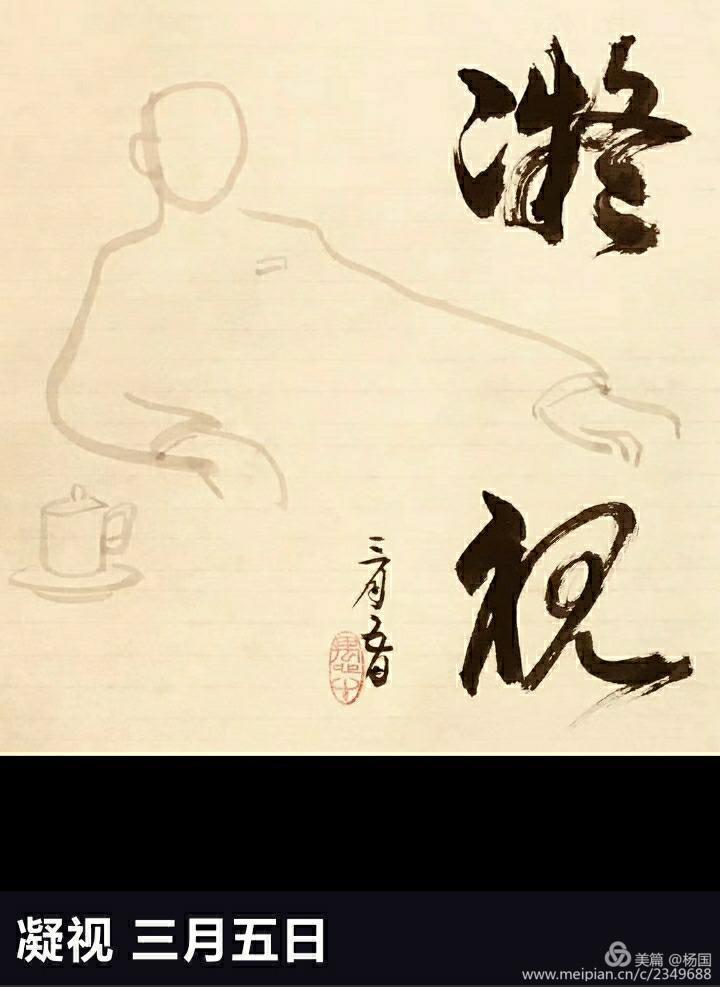 凝
视
三月五日
凝视 三月五日
美篇 @杨国
www.meipian.cn/c/2349688